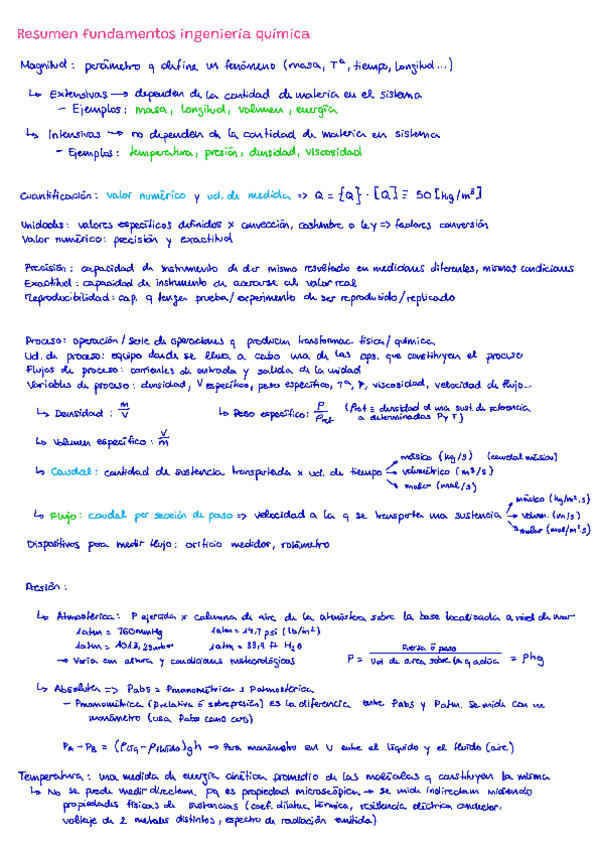 Resumen fundamentos ingeniería química
Magnitud: parámetro q define un fenómeno (masa, Tª, tiempo, longitud...)
↳ Extensivas → dependen de la cantidad de materia en el sistema
- Ejemplos: masa, longitud, volumen, energía
↳ Intensivas → no dependen de la cantidad de materia en sistema
- Ejemplos: temperatura, presión, densidad, viscosidad
Cuantificación: valor numérico y ud. de medida => Q = {Q} · [Q] ≡ 50 [kg/m³]
Unidades: valores específicos definidos x convección, costumbre o ley => factores conversión
Valor numérico: precisión y exactitud
Precisión: capacidad de instrumento de dar mismo resultado en mediciones diferentes, mismas condiciones
Exactitud: capacidad de instrumento de acercarse al valor real
Reproducibilidad: cap. q tenga prueba/experimento de ser reproducido/replicado
Proceso: operación/serie de operaciones q producen transformac física/química
Ud. de proceso: equipo donde se lleva a cabo una de las ops. que constituyen el proceso
Flujos de proceso: corrientes de entrada y salida de la unidad
Variables de proceso: densidad, V específico, peso específico, Tª, P, viscosidad, velocidad de flujo...
↳ Densidad: m/V ↳ Peso específico: ρ/ρref (ρref ≡ densidad d una sust. de referencia
a determinadas P y T)
↳ Volumen específico: V/m
↳ Caudal: cantidad de sustancia transportada x ud. de tiempo
másico (kg/s) (caudal másico)
volumétrico (m³/s)
molar (mol/s)
↳ Flujo: caudal por sección de paso => velocidad a la q se transporta una sustancia
másico (kg/m².s)
volum. (m/s)
molar (mol/m².s)
Dispositivos para medir flujo: orificio medidor, rotámetro
Presión:
↳ Atmosférica: P ejercida x columna de aire de la atmósfera sobre la base localizada a nivel de mar
1atm = 760mmHg 1atm = 14,7 psi (lb/in²)
1atm = 1013,25mbar 1atm = 33,9 ft H₂O
→ Varía con altura y condiciones meteorológicas P = Fuerza o peso / Ud de area sobre la q actúa = ρhg
↳ Absoluta => Pabs = Pmanométrica ± Patmosférica
- Pmanométrica (p relativa o sobrepresión) es la diferencia entre Pabs y Patm. Se mide con un
manómetro (usa Pabs como cero)
PA - PB = (ρliq - ρfluido)gh → Para manómetro en U entre el líquido y el fluido (aire)
Temperatura: una medida de energía cinética promedio de las moléculas q constituyen la misma
↳ No se puede medir directam. pq es propiedad microscópica → se mide indirectam midiendo
propiedades físicas de sustancias (coef. dilatac térmica, resistencia eléctrica conductor,
voltaje de 2 metales distintos, espectro de radiación emitida)